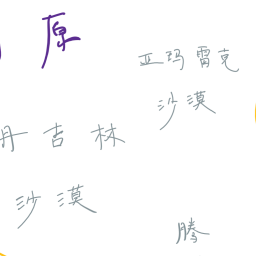 原
亚玛雷克
沙漠
丹吉林
沙漠
腾